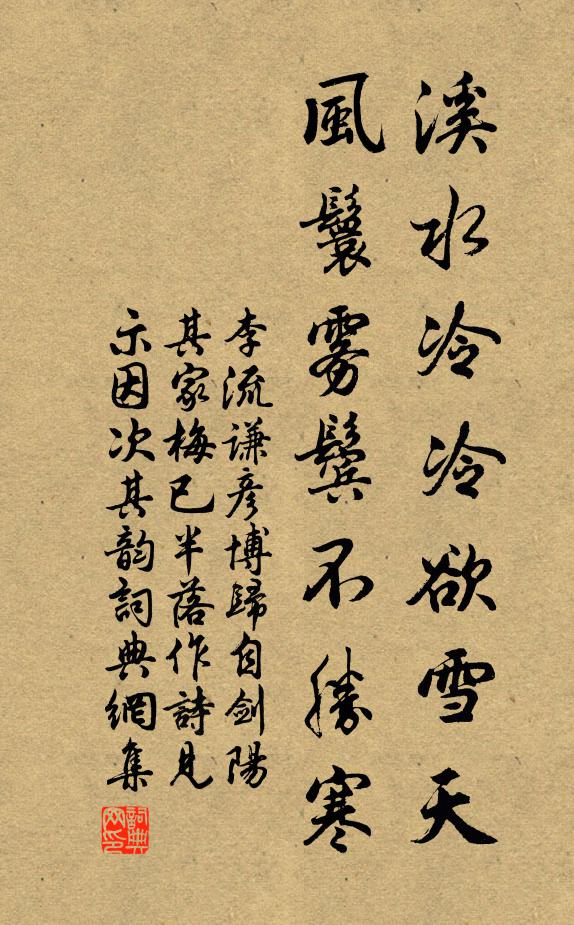 溪水冷冷欲雪天
風鬟雾鬓不勝寒
李流謙彦博歸自劍陽
其家梅已半落作詩見
示因次其韵詞典網集
詞典网印